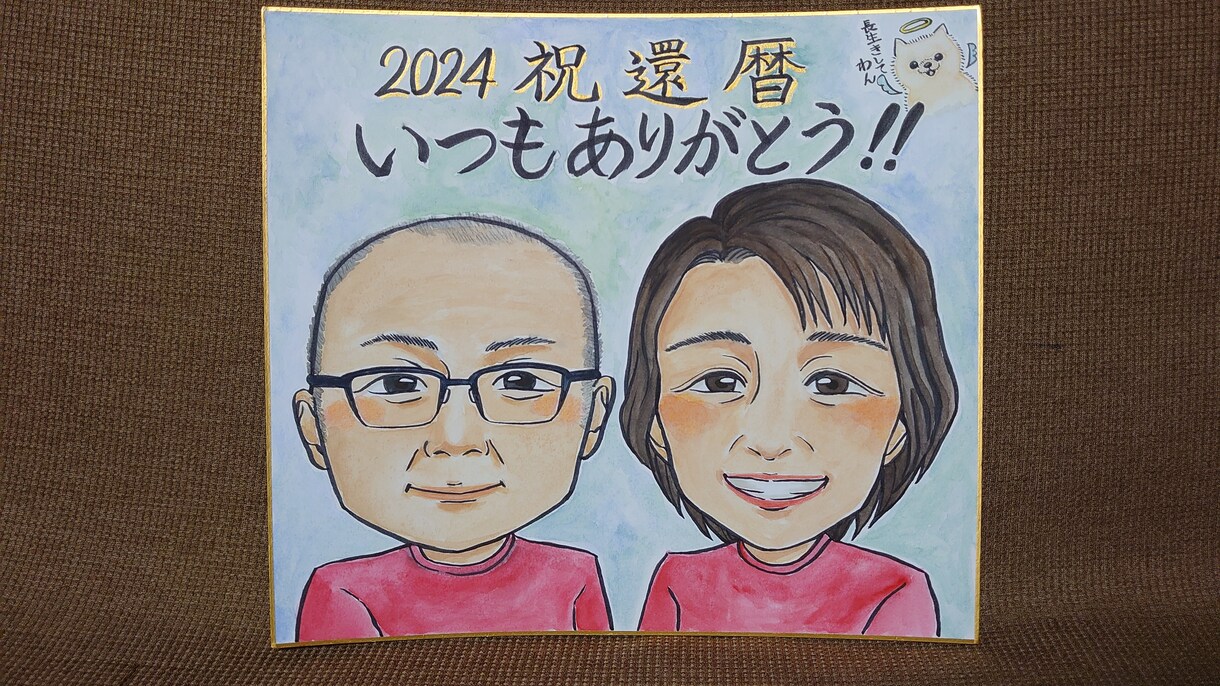 2024 祝 還 暦
いつもありがとう!!
長生きして
わん